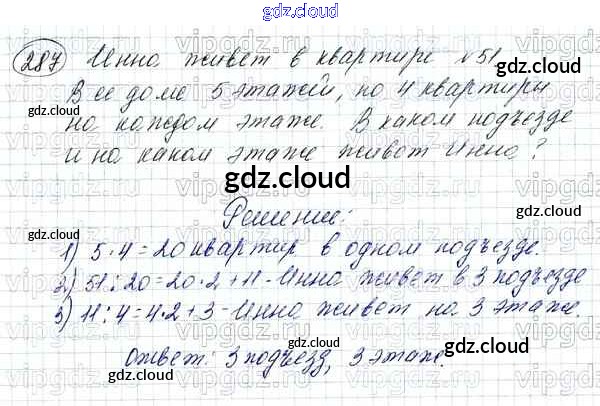 gdz.cloud
287 Инна живет в квартире №51.
В ее доме 5 этажей, по 4 квартиры
на каждом этаже. В каком подъезде
и на каком этаже живет Инна?
gdz.cloud
Решение:
1) 5·4=20 квартир в одном подъезде.
2) 51:20=20·2+11 - Инна живет в 3 подъезде
3) 11:4=4·2+3 - Инна живет на 3 этаже.
Ответ: 3 подъезд, 3 этаж.
gdz.cloud